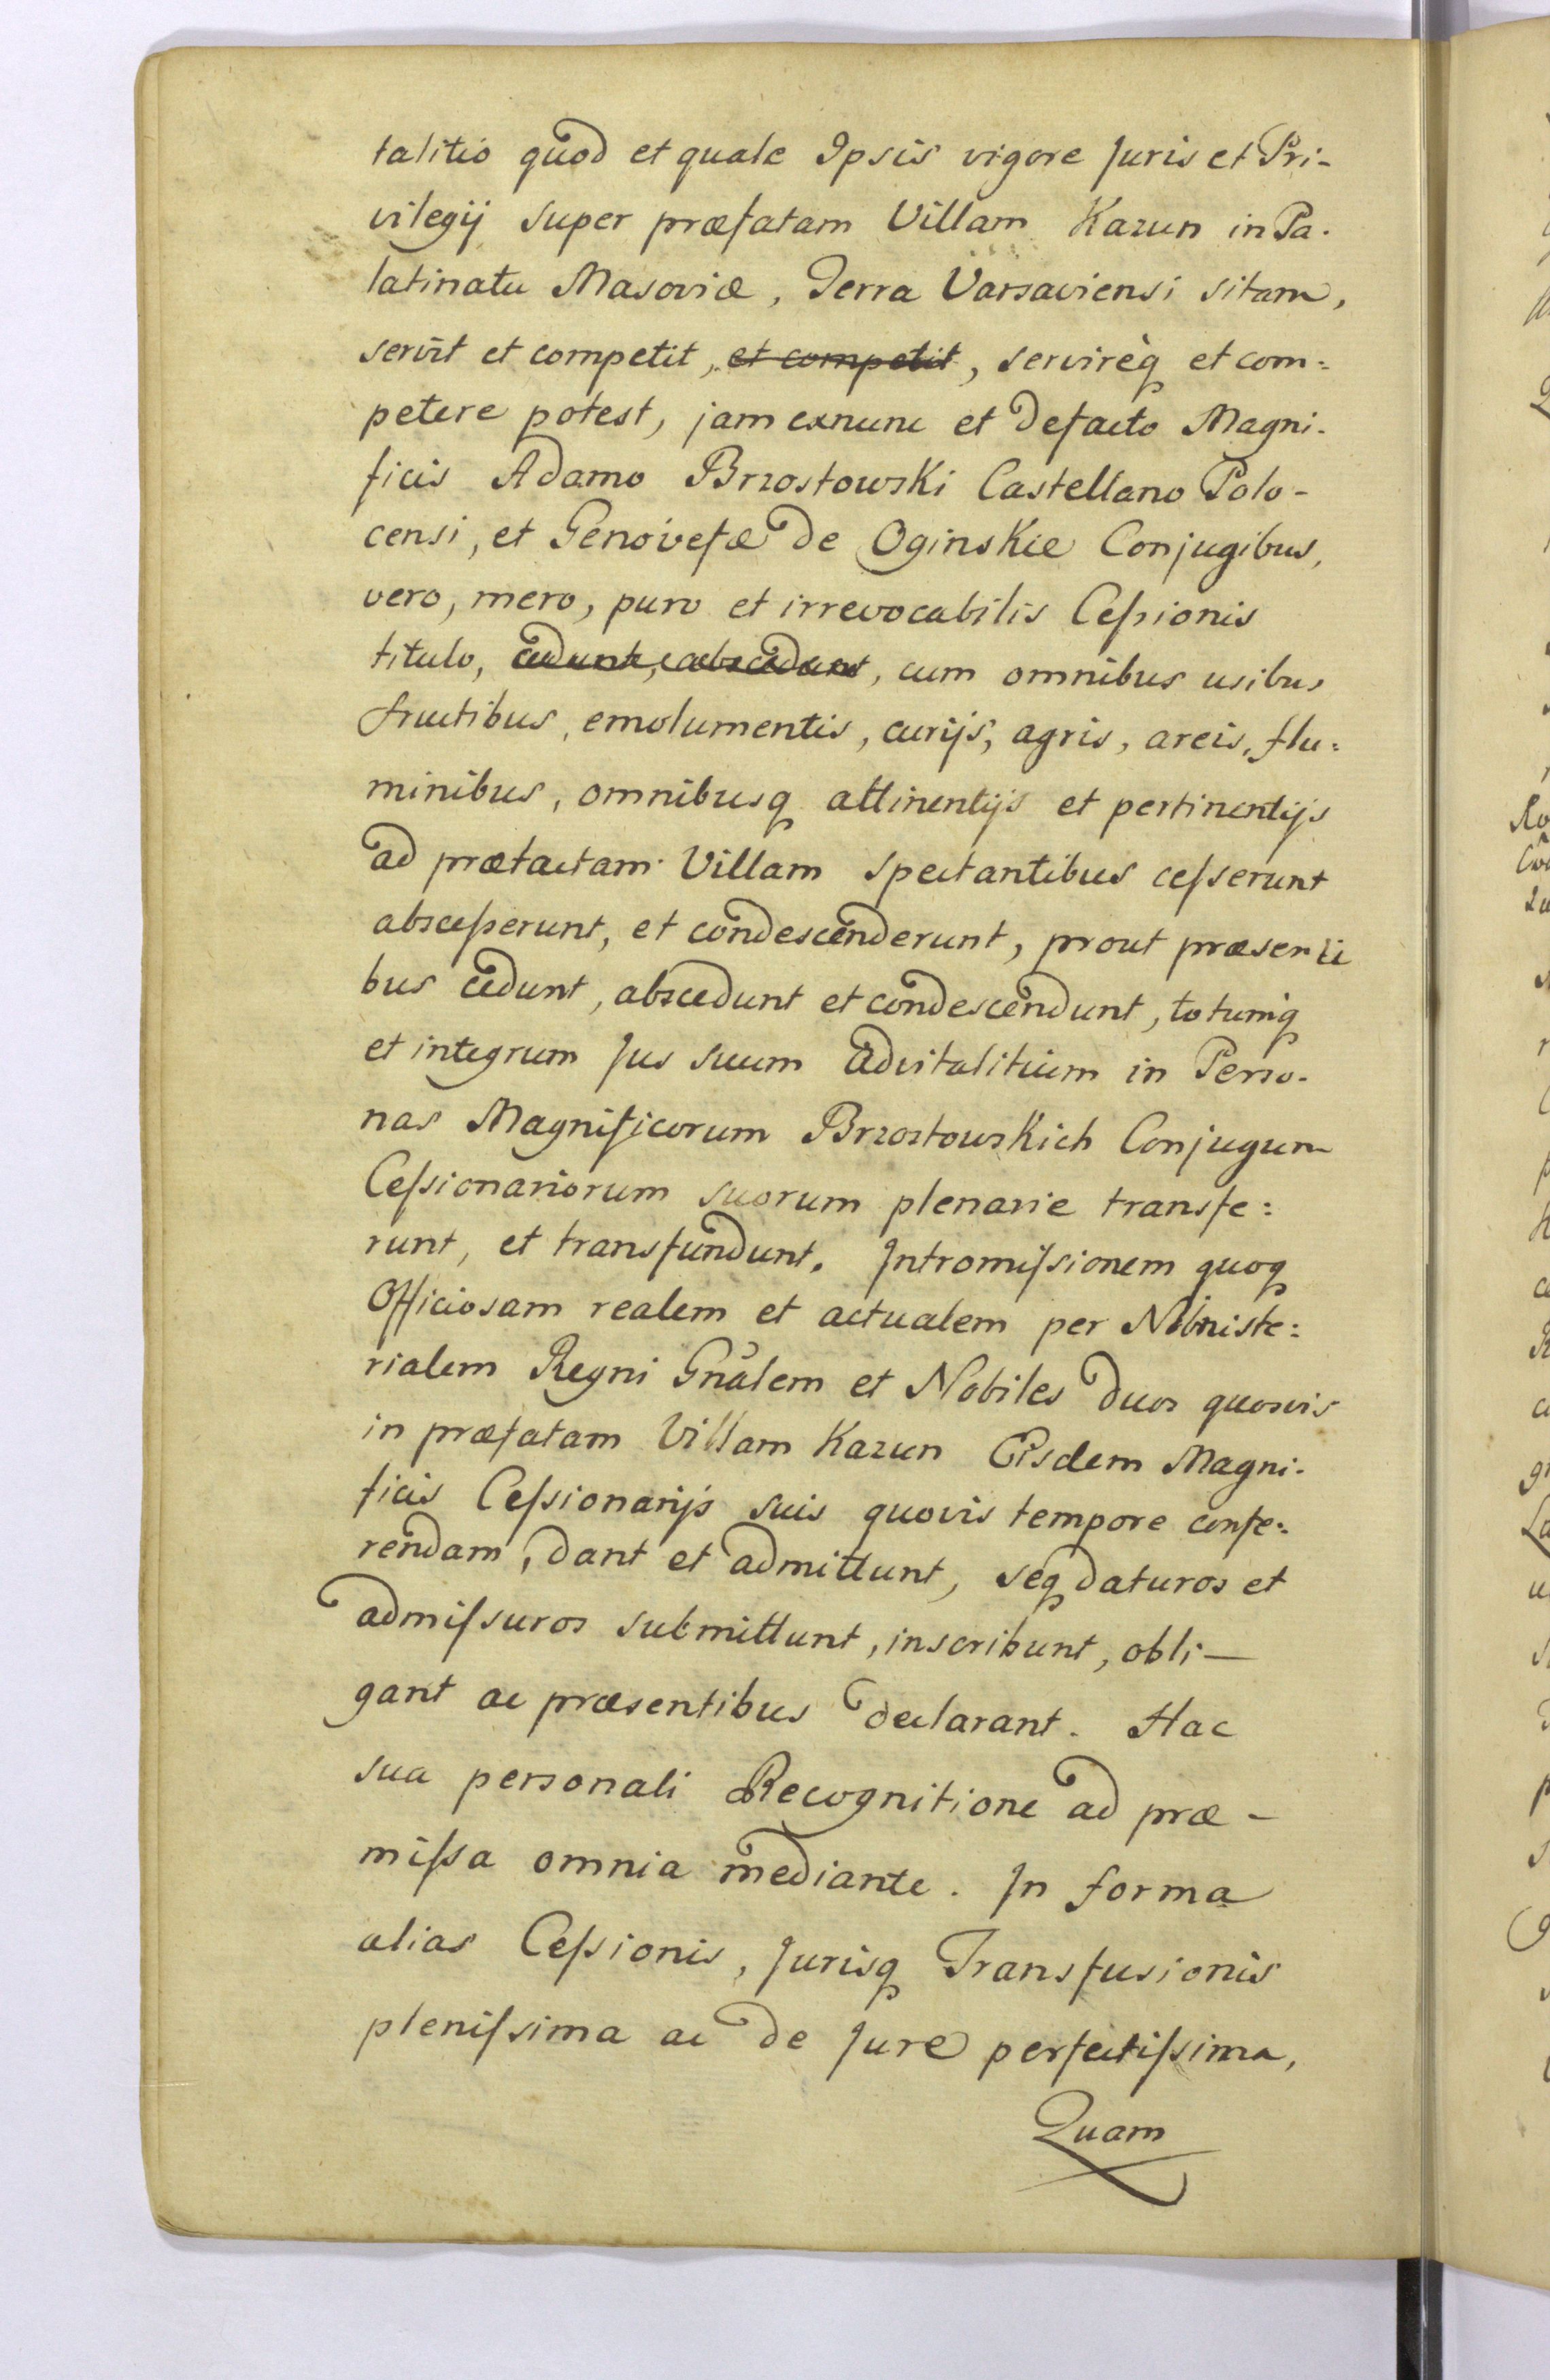 talitio quod et quale Ipsis vigore Juris et Pri-
vilegij super præfatam Villam Kazun in Pa-
latinatu Masoviæ, Terra Varsaviensi sitam,
servit et competit, et competit, servireq et com=
petere potest, jam exnunc et defacto Magni-
ficis Adamo Brzostowski Castellano Polo-
censi, et Genovefæ de Oginskie Conjugibus,
vero, mero, puro et irrevocabilis Ceſsionis
titulo, cedunt, abscedunt, cum omnibus usibus
fructibus, emolumentis, curijs, agris, areis, flu=
minibus, omnibusq attinentijs et pertinentijs
ad prætactam Villam spectantibus ceſserunt
absceſserunt, et condescenderunt, prout præsenti
bus cedunt, abscedunt et condescendunt, totumq
et integrum Jus suum advitalitium in Perso-
nas Magnificorum Brzostowskich Conjugum
Ceſsionariorum suorum plenarie transfe=
runt, et transfundunt. Intromiſsionem quoq
Officiosam realem et actualem per Ministe=
rialem Regni Gnãlem et Nobiles duos quosvis
in præfatam Villam Kazun Eisdem Magni-
ficis Ceſsionarijs suis quovis tempore confe=
rendam, dant et admittunt, seq daturos et
admiſsuros submittunt, inscribunt, obli—
gant ac præsentibus declarant. Hac
sua personali Recognitione ad præ-
miſsa omnia mediante. In forma
alias Ceſsionis, Jurisq Transfusionis
pleniſsima ac de Jure perfectiſsima,
Quam